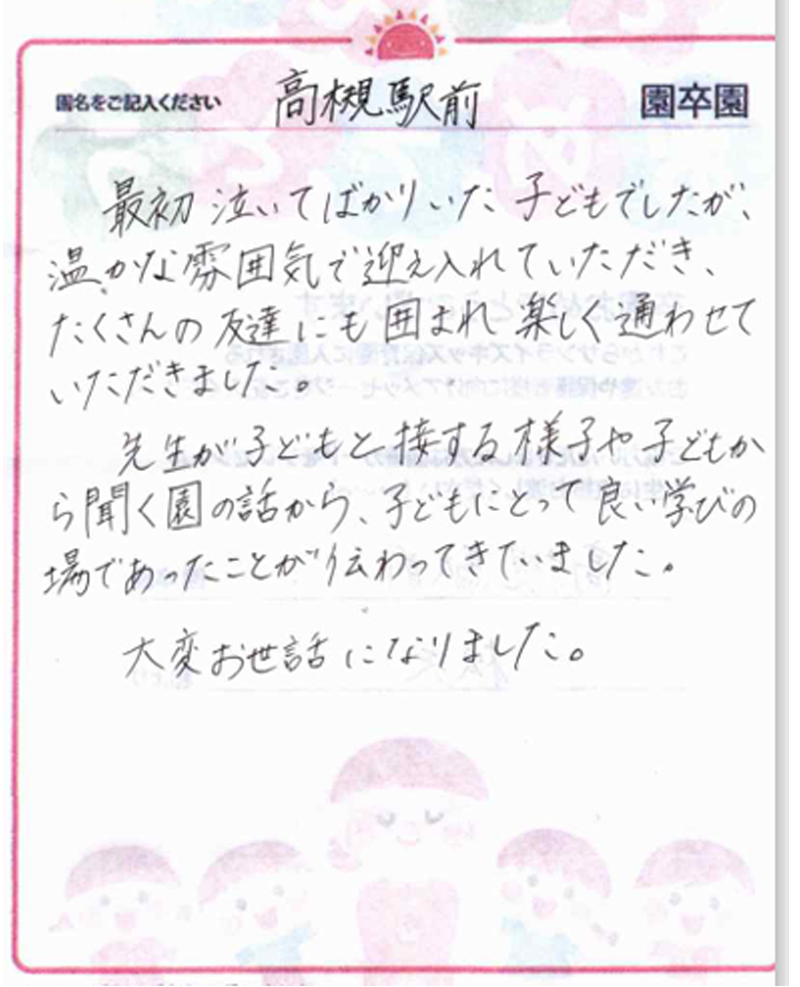 園名をご記入ください 高槻駅前 園卒園
最初泣いてばかりいた子どもでしたが、
温かな雰囲気で迎え入れていただき、
たくさんの友達にも囲まれ楽しく通わせて
いただきました。
先生が子どもと接する様子や子どもか
ら聞く園の話から、子どもにとって良い学びの
場であったことが伝わってきていました。
大変お世話になりました。